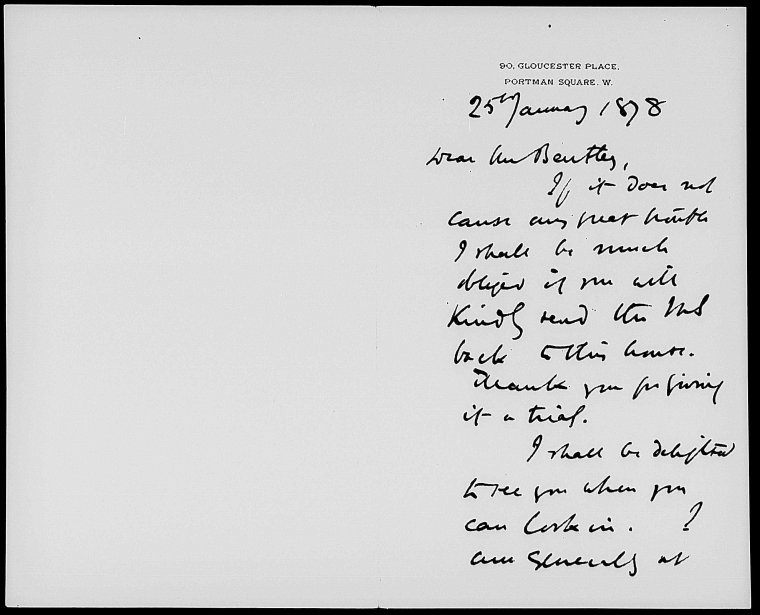 90, GLOUCESTER PLACE,
PORTMAN SQUARE. W.
25th January 1878
Dear Mr Bentley,
If it does not
cause any great trouble
I shall be much
obliged if you will
kindly send the MS
back to this house.
Thank you for giving
it a trial.
I shall be delighted
to see you when you
can look in. I
am generally at